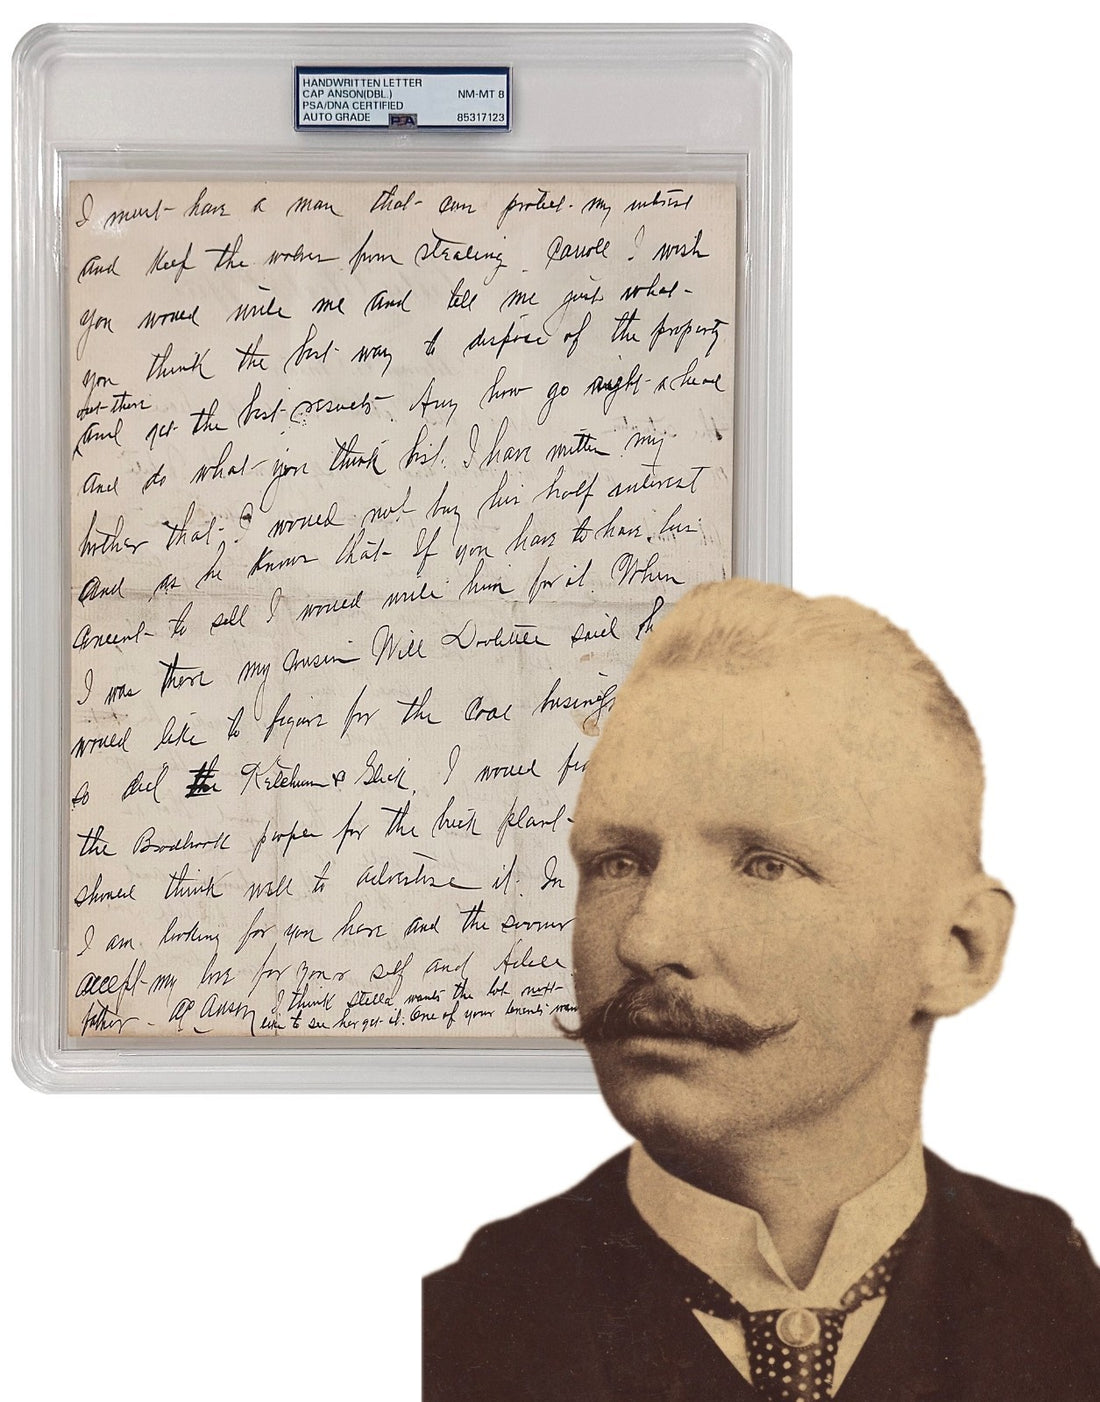 HANDWRITTEN LETTER
CAP ANSON(DBL.) NM-MT 8
PSA/DNA CERTIFIED
AUTO GRADE PSA 85317123
I must have a man that can protect my interest
and keep the wolves from stealing. Carroll I wish
you would write me and tell me just what
you think the best way to dispose of the property
out there
and get the best results. Any how go right ahead
and do what you think best. I have written my
brother that I would not buy his half interest
and as he knows that. If you have to have his
to sell I would write him for it. When
I was there my cousin Will Doolittle said he
would like to figure for the coal business
so did the Ketchum & Glick. I would
the paper for the brick plant
should think well to advertise it. In
I am looking for you here and the sooner
accept my love for your self and Adele
father. AC Anson I think Stella wants the lot next
like to see her get it. One of your tenants